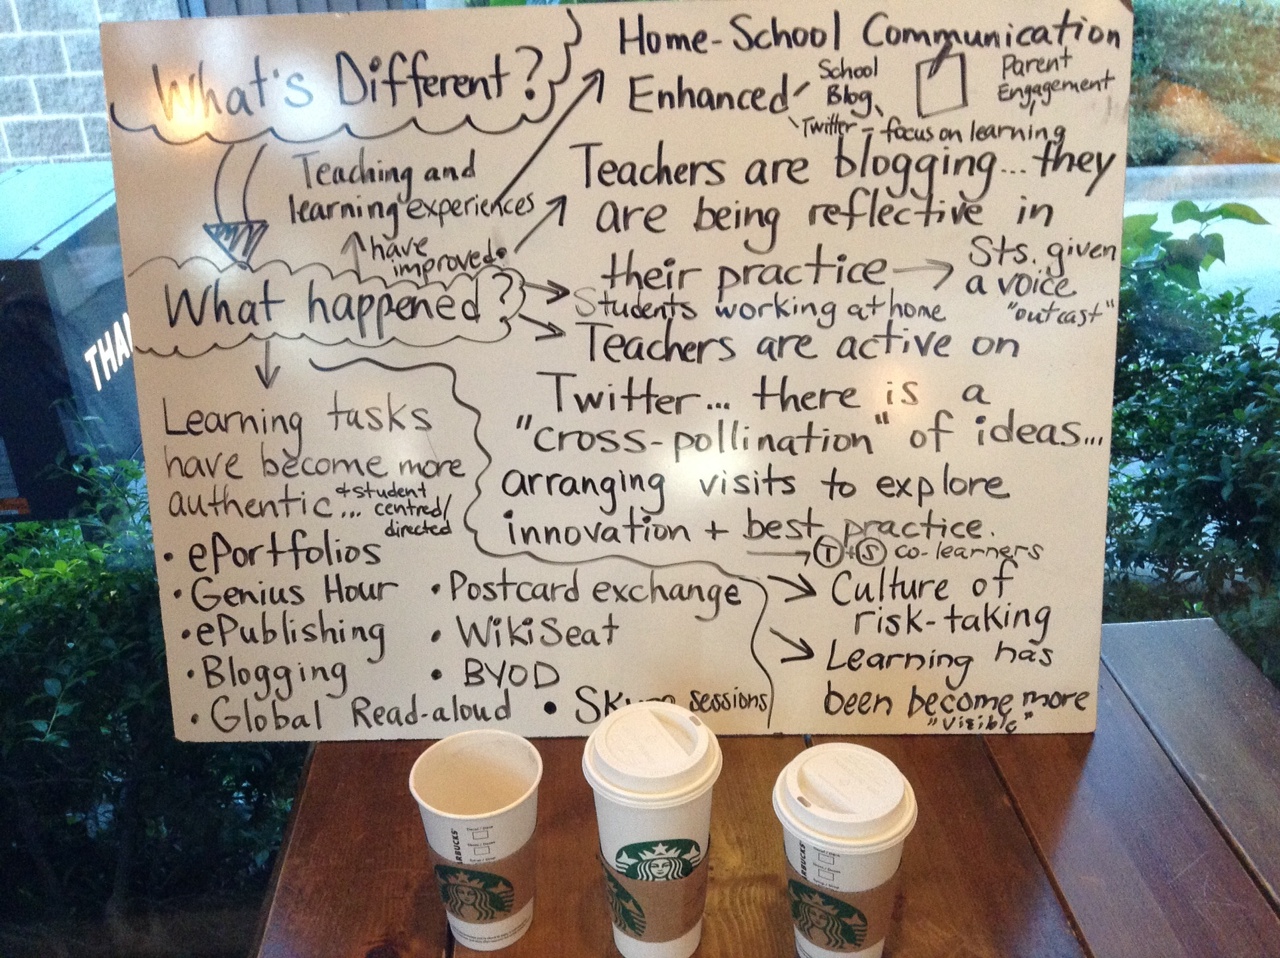 What's Different?
Teaching and
learning experiences
have
improved.
What happened?
Learning tasks
have become more
authentic...
+ student
centred/
directed
• ePortfolios
• Genius Hour
• ePublishing
• Blogging
• Global Read-aloud
• Postcard exchange
• WikiSeat
• BYOD
• sessions
Home-School Communication
Enhanced
School
Blog
Twitter - focus on learning
Parent
Engagement
Teachers are blogging... they
are being reflective in
their practice → Sts. given
a voice
"outcast"
Students working at home
Teachers are active on
Twitter... there is a
"cross-pollination" of ideas...
arranging visits to explore
innovation + best practice.
→ T + S co-learners
Culture of
risk-taking
Learning has
been become more
"visible"
THA